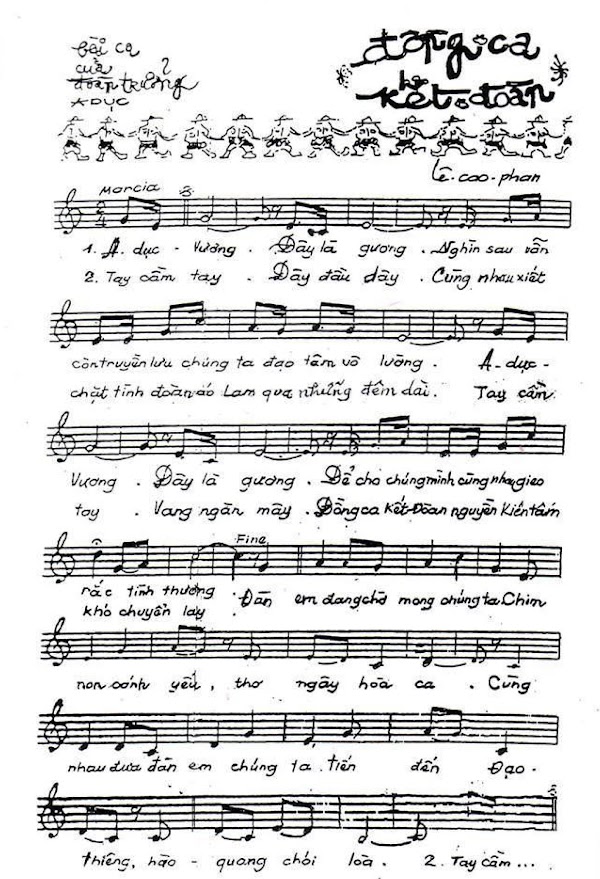 bài ca
của
đoàn trưởng
A DỤC
đồng ca
kết đoàn
Lê-cao-phan
Marcia
2
4
1. A. dục - Vương . Đây là gương . Nghìn sau vẫn
2. Tay cầm tay . Đây đầu dây . Cùng nhau xiết
còn truyền lưu chúng ta đạo tâm vô lường . A-dục-
chặt tình đoàn áo Lam qua những đêm dài . Tay cầm
Vương . Đây là gương . Để cho chúng mình cùng nhau gieo
tay . Vang ngàn mây . Đồng ca Kết-Đoàn nguyền Kiên tâm
Fine
rắc tình thương . Đàn em đang chờ mong chúng ta. Chim
khó chuyển lay .
non cánh yếu , thơ ngây hòa ca . Cùng
nhau đưa đàn em chúng ta . tiến đến Đạo-
thiêng, hào - quang chói lòa . 2. Tay cầm ...